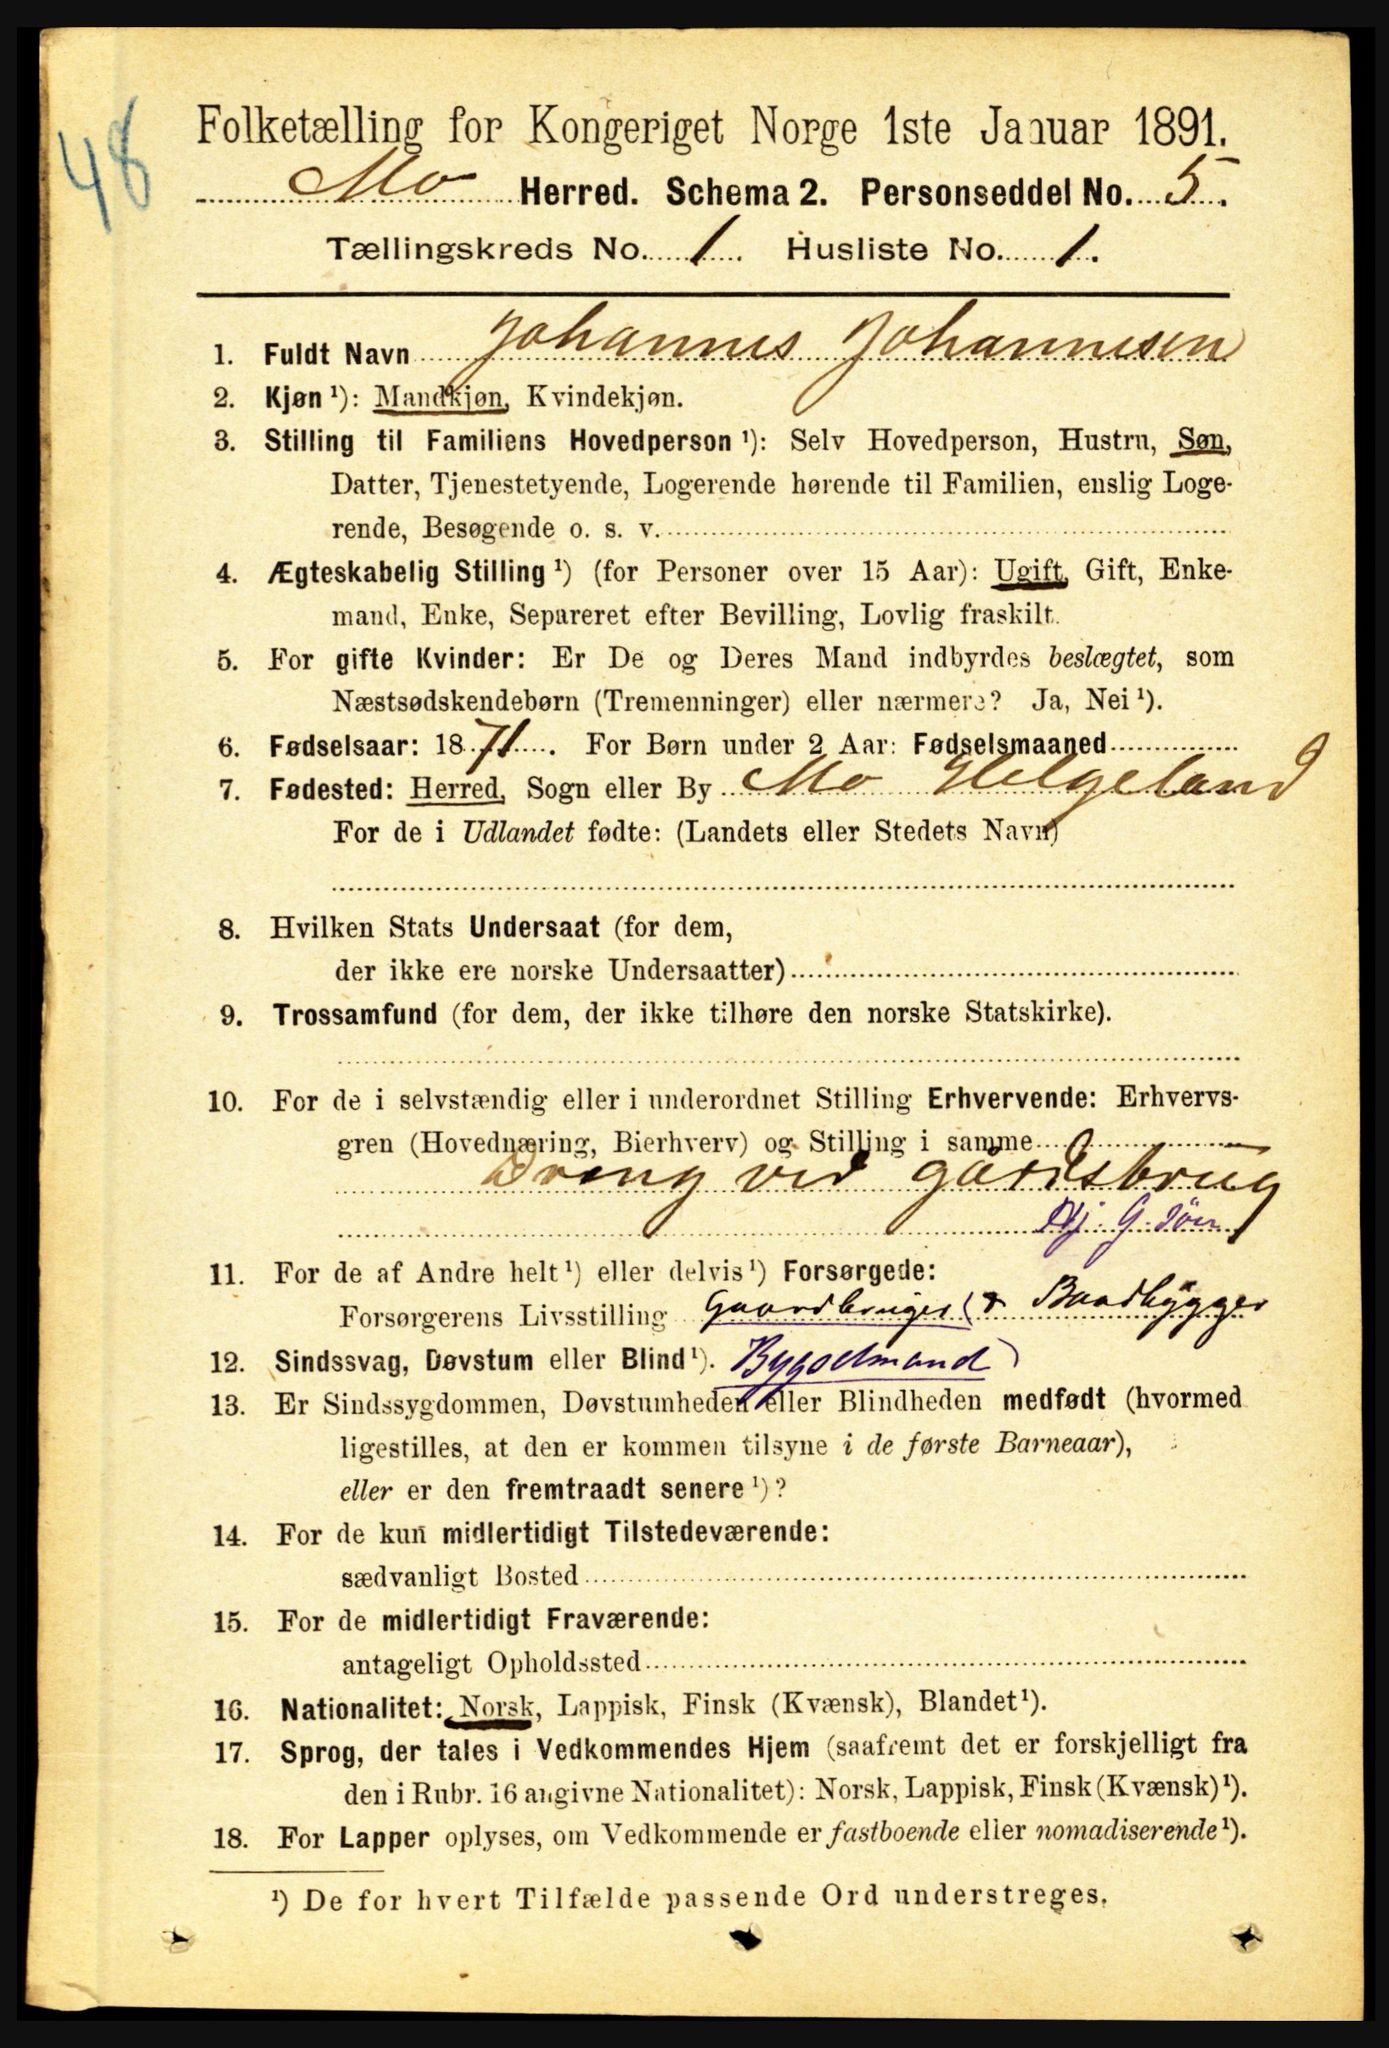 48
Folketælling for Kongeriget Norge 1ste Januar 1891.
Mo Herred. Schema 2. Personseddel No. 5.
Tællingskreds No. 1. Husliste No. 1.
1. Fuldt Navn Johannes Johannesen
2. Kjøn ¹): Mandkjøn, Kvindekjøn.
3. Stilling til Familiens Hovedperson ¹): Selv Hovedperson, Hustru, Søn,
Datter, Tjenestetyende, Logerende hørende til Familien, enslig Loge-
rende, Besøgende o. s. v.
4. Ægteskabelig Stilling ¹) (for Personer over 15 Aar): Ugift, Gift, Enke-
mand, Enke, Separeret efter Bevilling, Lovlig fraskilt.
5. For gifte Kvinder: Er De og Deres Mand indbyrdes beslægtet, som
Næstsødskendebørn (Tremenninger) eller nærmere? Ja, Nei ¹).
6. Fødselsaar: 1871. For Børn under 2 Aar: Fødselsmaaned
7. Fødested: Herred, Sogn eller By Mo Helgeland
For de i Udlandet fødte: (Landets eller Stedets Navn)
8. Hvilken Stats Undersaat (for dem,
der ikke ere norske Undersaatter)
9. Trossamfund (for dem, der ikke tilhøre den norske Statskirke).
10. For de i selvstændig eller i underordnet Stilling Erhvervende: Erhvervs-
gren (Hovednæring, Bierhverv) og Stilling i samme
Dreng ved gårdsbrug
Hj. G. Søn
11. For de af Andre helt ¹) eller delvis ¹) Forsørgede:
Forsørgerens Livsstilling Gaardbruger (& Baadbygger
12. Sindssvag, Døvstum eller Blind ¹). Bygselmand)
13. Er Sindssygdommen, Døvstumheden eller Blindheden medfødt (hvormed
ligestilles, at den er kommen tilsyne i de første Barneaar),
eller er den fremtraadt senere ¹)?
14. For de kun midlertidigt Tilstedeværende:
sædvanligt Bosted
15. For de midlertidigt Fraværende:
antageligt Opholdssted
16. Nationalitet: Norsk, Lappisk, Finsk (Kvænsk), Blandet ¹).
17. Sprog, der tales i Vedkommendes Hjem (saafremt det er forskjelligt fra
den i Rubr. 16 angivne Nationalitet): Norsk, Lappisk, Finsk (Kvænsk) ¹).
18. For Lapper oplyses, om Vedkommende er fastboende eller nomadiserende ¹).
¹) De for hvert Tilfælde passende Ord understreges.